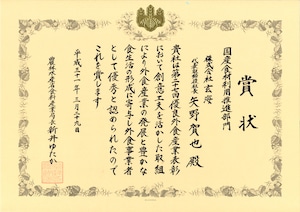 賞状
国産食材利用推進部門
株式会社玄海
代表取締役社長
矢野賀也殿
貴社は第二十四回優良外食産業表彰
において創意工夫を活かした取組
により外食産業の発展と豊かな
食生活の形成に寄与し外食事業者
として優秀と認められたので
これを賞します
平成二十一年三月二十九日
農林水産省食料産業局長新井ゆたか